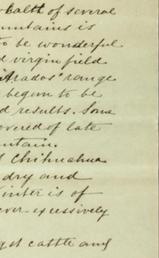 health of several
mountains is
to be wonderful
d virgin field
range
begun to be
d results. Some
covered of late
untain.
Chihuahua
dry and
inter is of
ver excessively
cattle and